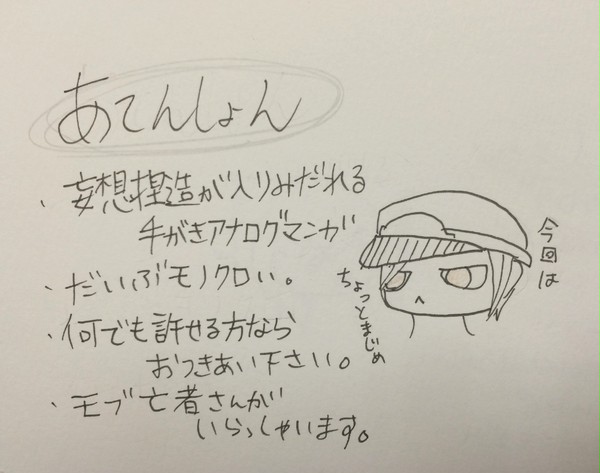 あてんしょん
・妄想捏造が入りみだれる
手がきアナログマンガ
・だいぶモノクロい。
・何でも許せる方なら
おつきあい下さい。
・モブ亡者さんが
いらっしゃいます。
今回は
ちょっとまじめ